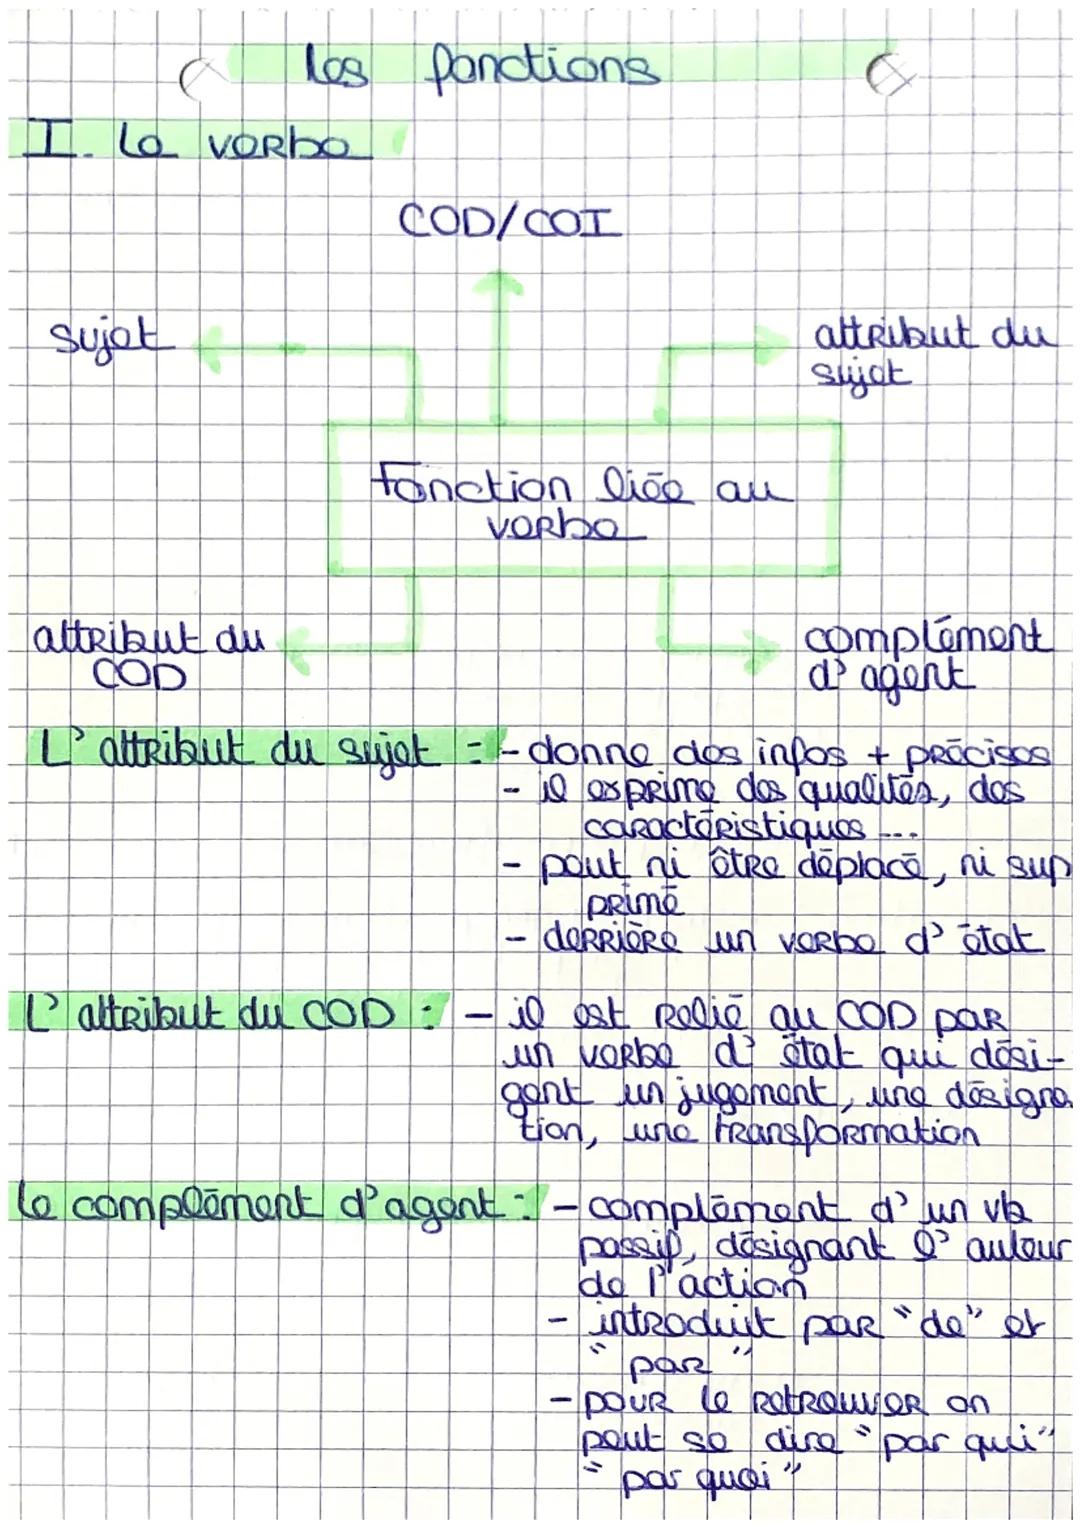 les fonctions
I. Le verbe
COD/COI
sujet
attribut du
sujet
Fonction liée au
verbe
attribut du
COD
complément
d'agent
L'attribut du sujet : - donne des infos + précises
- il exprime des qualités, des
caractéristiques ...
- peut ni être déplacé, ni sup
primé
- derrière un verbe d'état
L'attribut du COD : - il est relié au COD par
un verbe d'état qui dési-
gent un jugement, une désigna
tion, une transformation
le complément d'agent : - complément d'un vb
passif, désignant l'auteur
de l'action
- introduit par "de" et
"par"
- pour le retrouver on
peut se dire "par qui"
"par quoi"